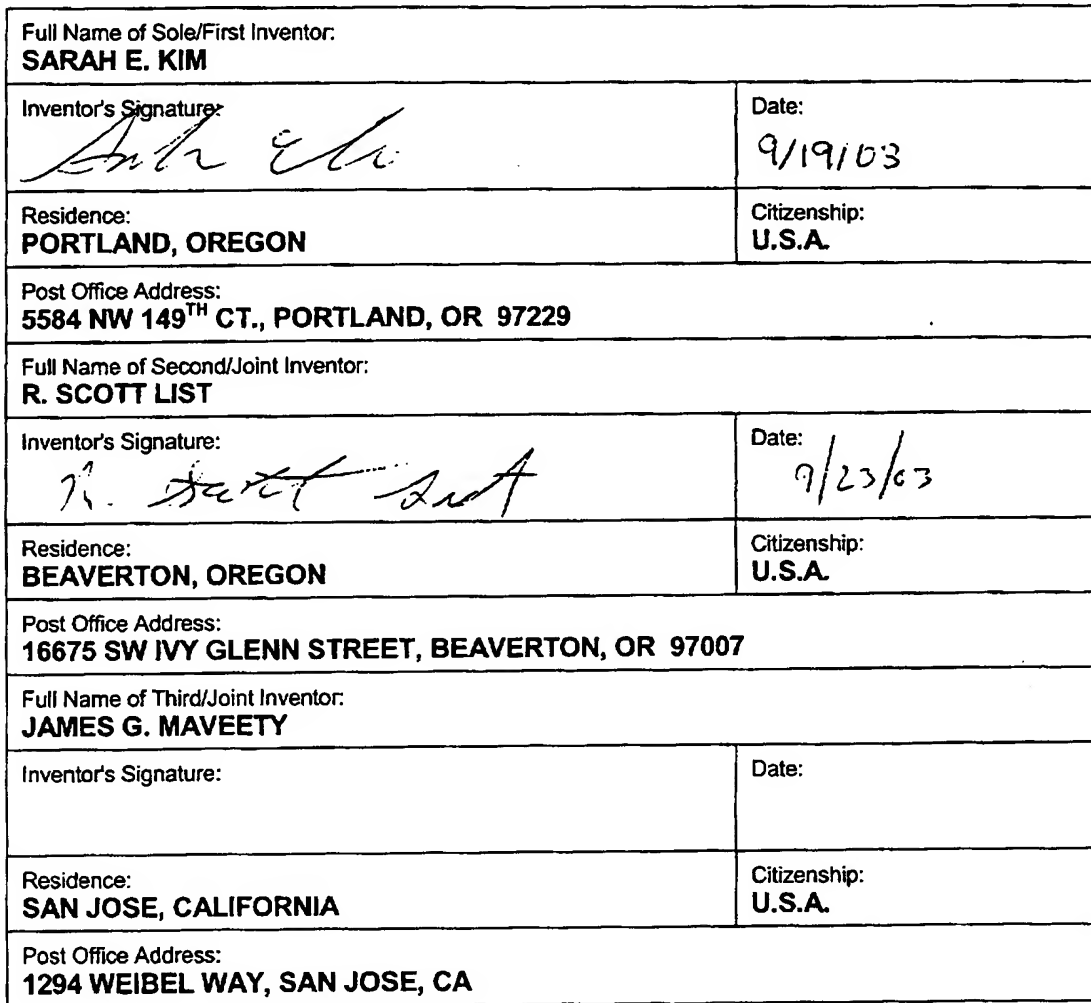 Full Name of Sole/First Inventor:
SARAH E. KIM
Inventor's Signature:
Date:
9/19/03
Residence:
PORTLAND, OREGON
Citizenship:
U.S.A.
Post Office Address:
5584 NW 149TH CT., PORTLAND, OR 97229
Full Name of Second/Joint Inventor:
R. SCOTT LIST
Inventor's Signature:
R. Scott List
Date:
9/23/03
Residence:
BEAVERTON, OREGON
Citizenship:
U.S.A.
Post Office Address:
16675 SW IVY GLENN STREET, BEAVERTON, OR 97007
Full Name of Third/Joint Inventor:
JAMES G. MAVEETY
Inventor's Signature:
Date:
Residence:
SAN JOSE, CALIFORNIA
Citizenship:
U.S.A.
Post Office Address:
1294 WEIBEL WAY, SAN JOSE, CA